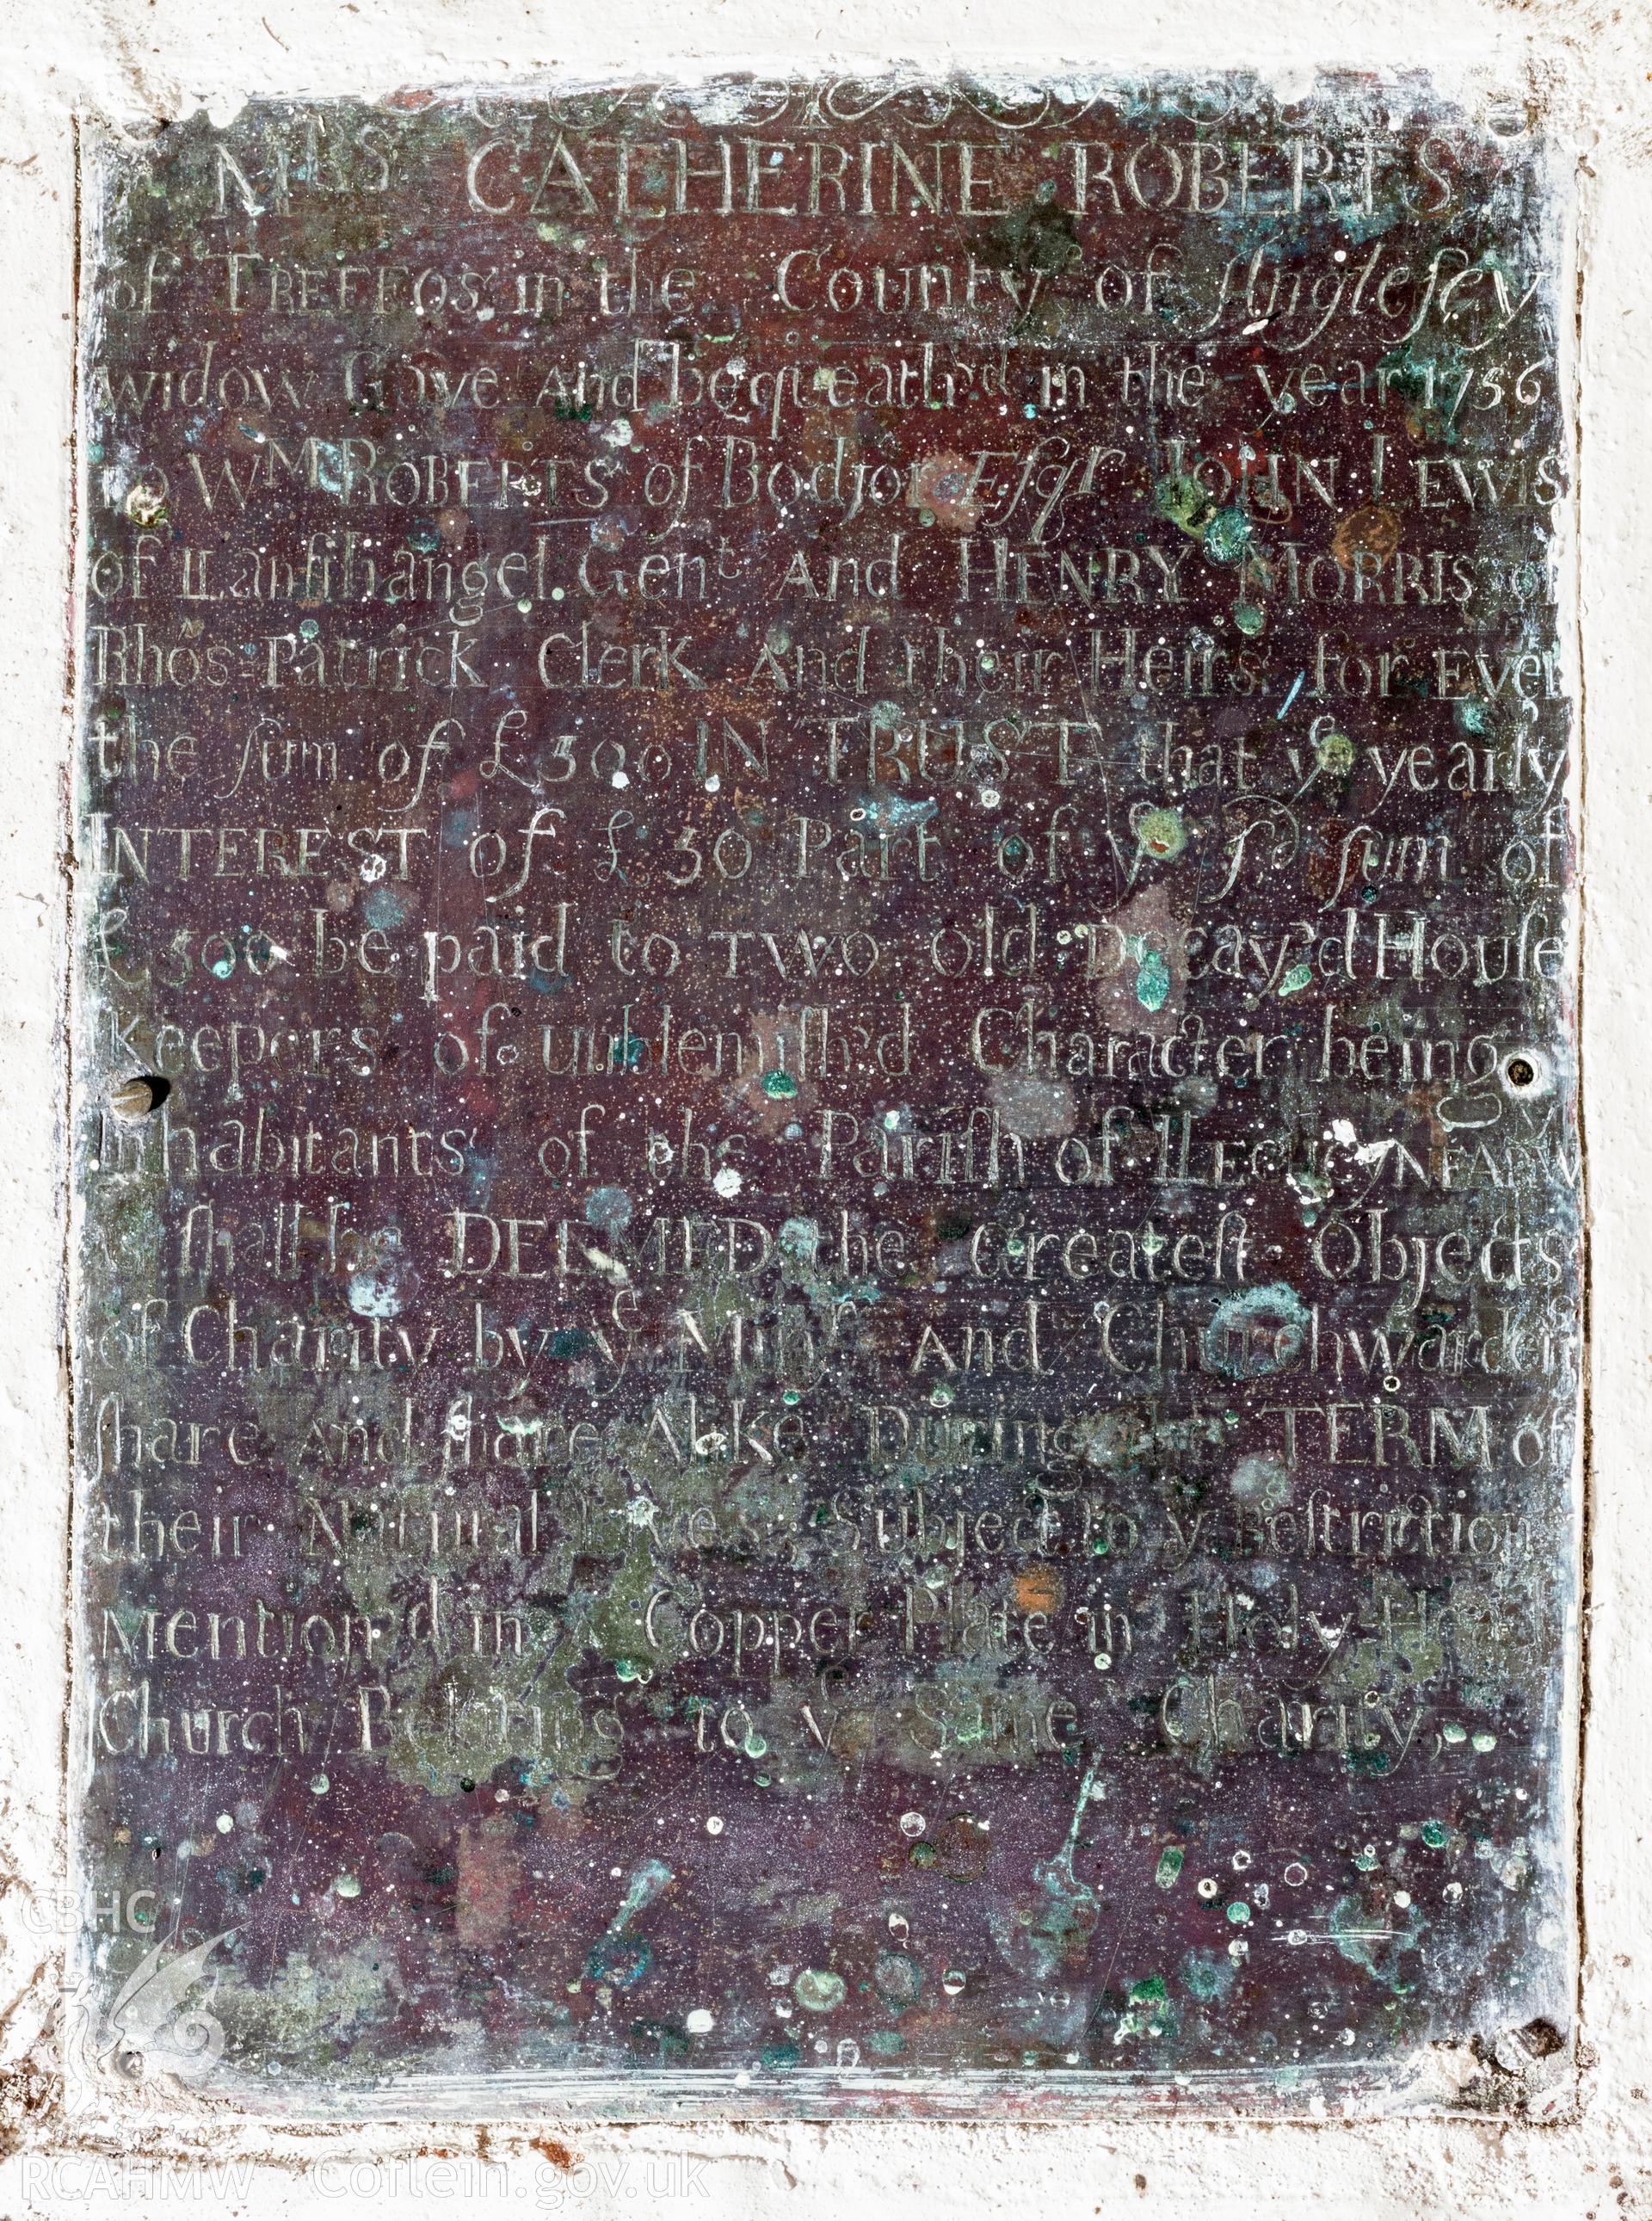 MRS CATHERINE ROBERTS
of TREFFOS in the County of Angleſey
widow Gave And bequeath'd in the year 1756
To Wᴹ ROBERTS of Bodjor Eſqr JOHN LEWIS
of LLanfihangel Genᵗ And HENRY MORRIS of
Rhôs-Patrick Clerk And their Heirs for Ever
the ſum of £500 IN TRUST that yᵉ yearly
INTEREST of £ 50 Part of yᵉ ſᵈ ſum of
£ 500 be paid to TWO old Decay'd Houſe
Keepers of unblemiſh'd Character being
inhabitants of the Pariſh of LLECHCYNFARW
ſhall be DEEMED the Greateſt Objects
of Charity by yᵉ Minʳ And Churchwarden
ſhare And ſhare Alike During their TERM of
their Natural Lives, Subject to yᵉ Reſtriction
Mention'd in A Copper Plate in Holy-Head
Church Belonging to yᵉ Same Charity,
CBHC
RCAHMW Coflein.gov.uk